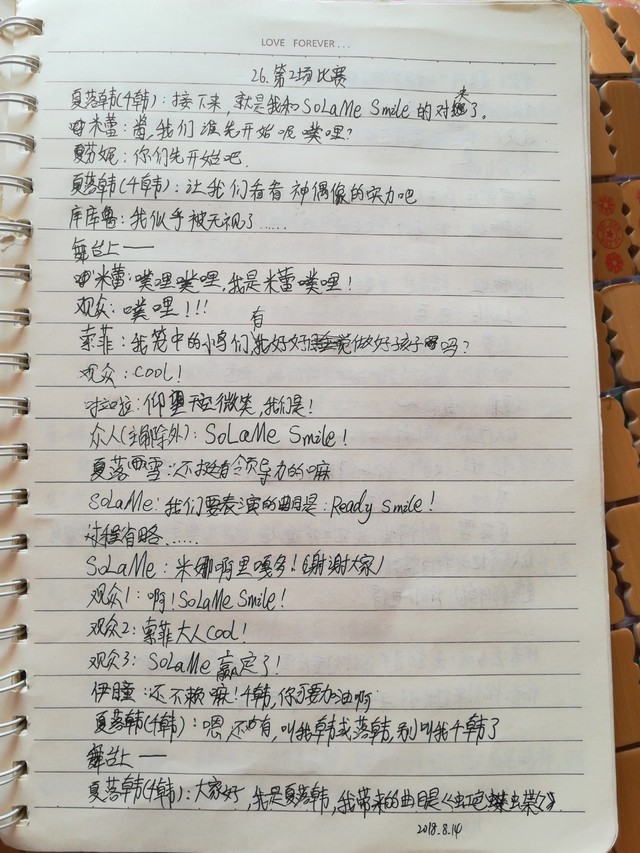 LOVE FOREVER...
26.第2场比赛
夏落韩(千韩)：接下来，就是我和SoLaMe Smile的对决了。
米蕾：酱，我们谁先开始呢噗哩？
夏芬妮：你们先开始吧.
夏落韩(千韩)：让我们看看神偶像的实力吧
库库鲁：我似乎被无视了……
舞台上——
米蕾：噗哩噗哩，我是米蕾噗哩！
观众：噗哩！！！
索菲：我笼中的小鸟们，有好好做好孩子吗？
观众：COOL！
啦啦：仰望天空微笑，我们是！
众人(主角除外)：SoLaMe Smile！
夏落雪：还挺有领导力的嘛
SoLaMe：我们要表演的曲目是：Ready Smile！
过程省略……
SoLaMe：米娜啊里嘎多！(谢谢大家)
观众1：啊！SoLaMe Smile！
观众2：索菲大人cool！
观众3：SoLaMe赢定了！
伊瞳：还不赖嘛！千韩，你可要加油啊
夏落韩(千韩)：嗯，还有，叫我韩或落韩，别叫我千韩了
舞台上——
夏落韩(千韩)：大家好，我是夏落韩，我带来的曲目是《虹色蝶
2018.8.14